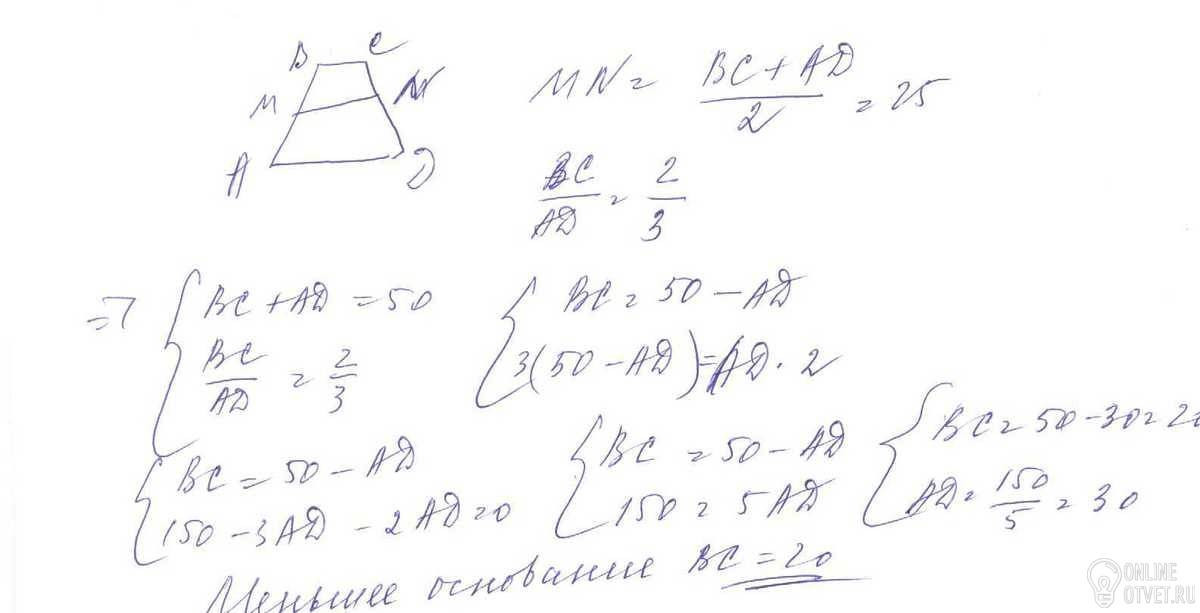 B C
M N
A D
MN = (BC + AD)/2 = 25
BC/AD = 2/3
=> { BC + AD = 50
BC/AD = 2/3
{ BC = 50 - AD
3(50 - AD) = AD · 2
{ BC = 50 - AD
150 - 3AD - 2AD = 0
{ BC = 50 - AD
150 = 5AD
{ BC = 50 - 30 = 20
AD = 150/5 = 30
Меньшее основание BC = 20
ONLINE
OTVET.RU